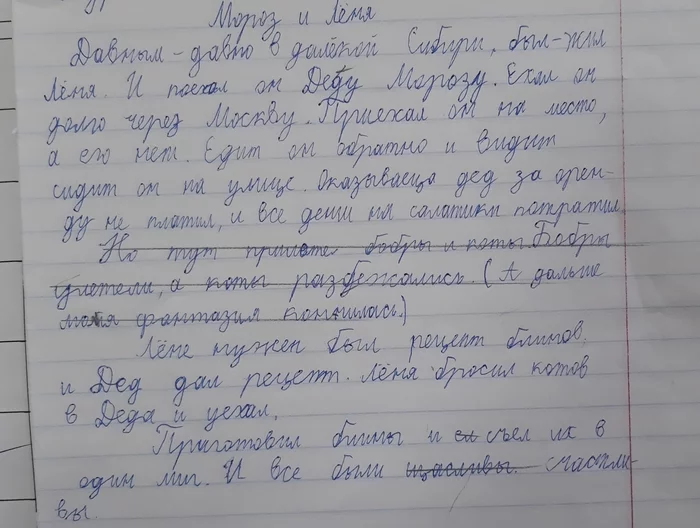 Мороз и Лёня
Давным-давно в далёкой Сибири, был-жил
Лёня. И поехал он Деду Морозу. Ехал он
долго через Москву. Приехал он на место,
а его нет. Едит он обратно и видит
сидит он на улице. Оказываеца дед за арен-
ду не платил, и все деньи на салатики потратил.
Но тут прилете бобры и коты. Бобры
улетели, а коты разбежались. (А дальше
моя фантазия кончилась.)
Лёне нужен был рецепт блинов,
и Дед дал рецепт. Лёня бросил котов
в Деда и уехал.
Приготовил блины и съел их в
один миг. И все были щасливы. счастли-
вы.